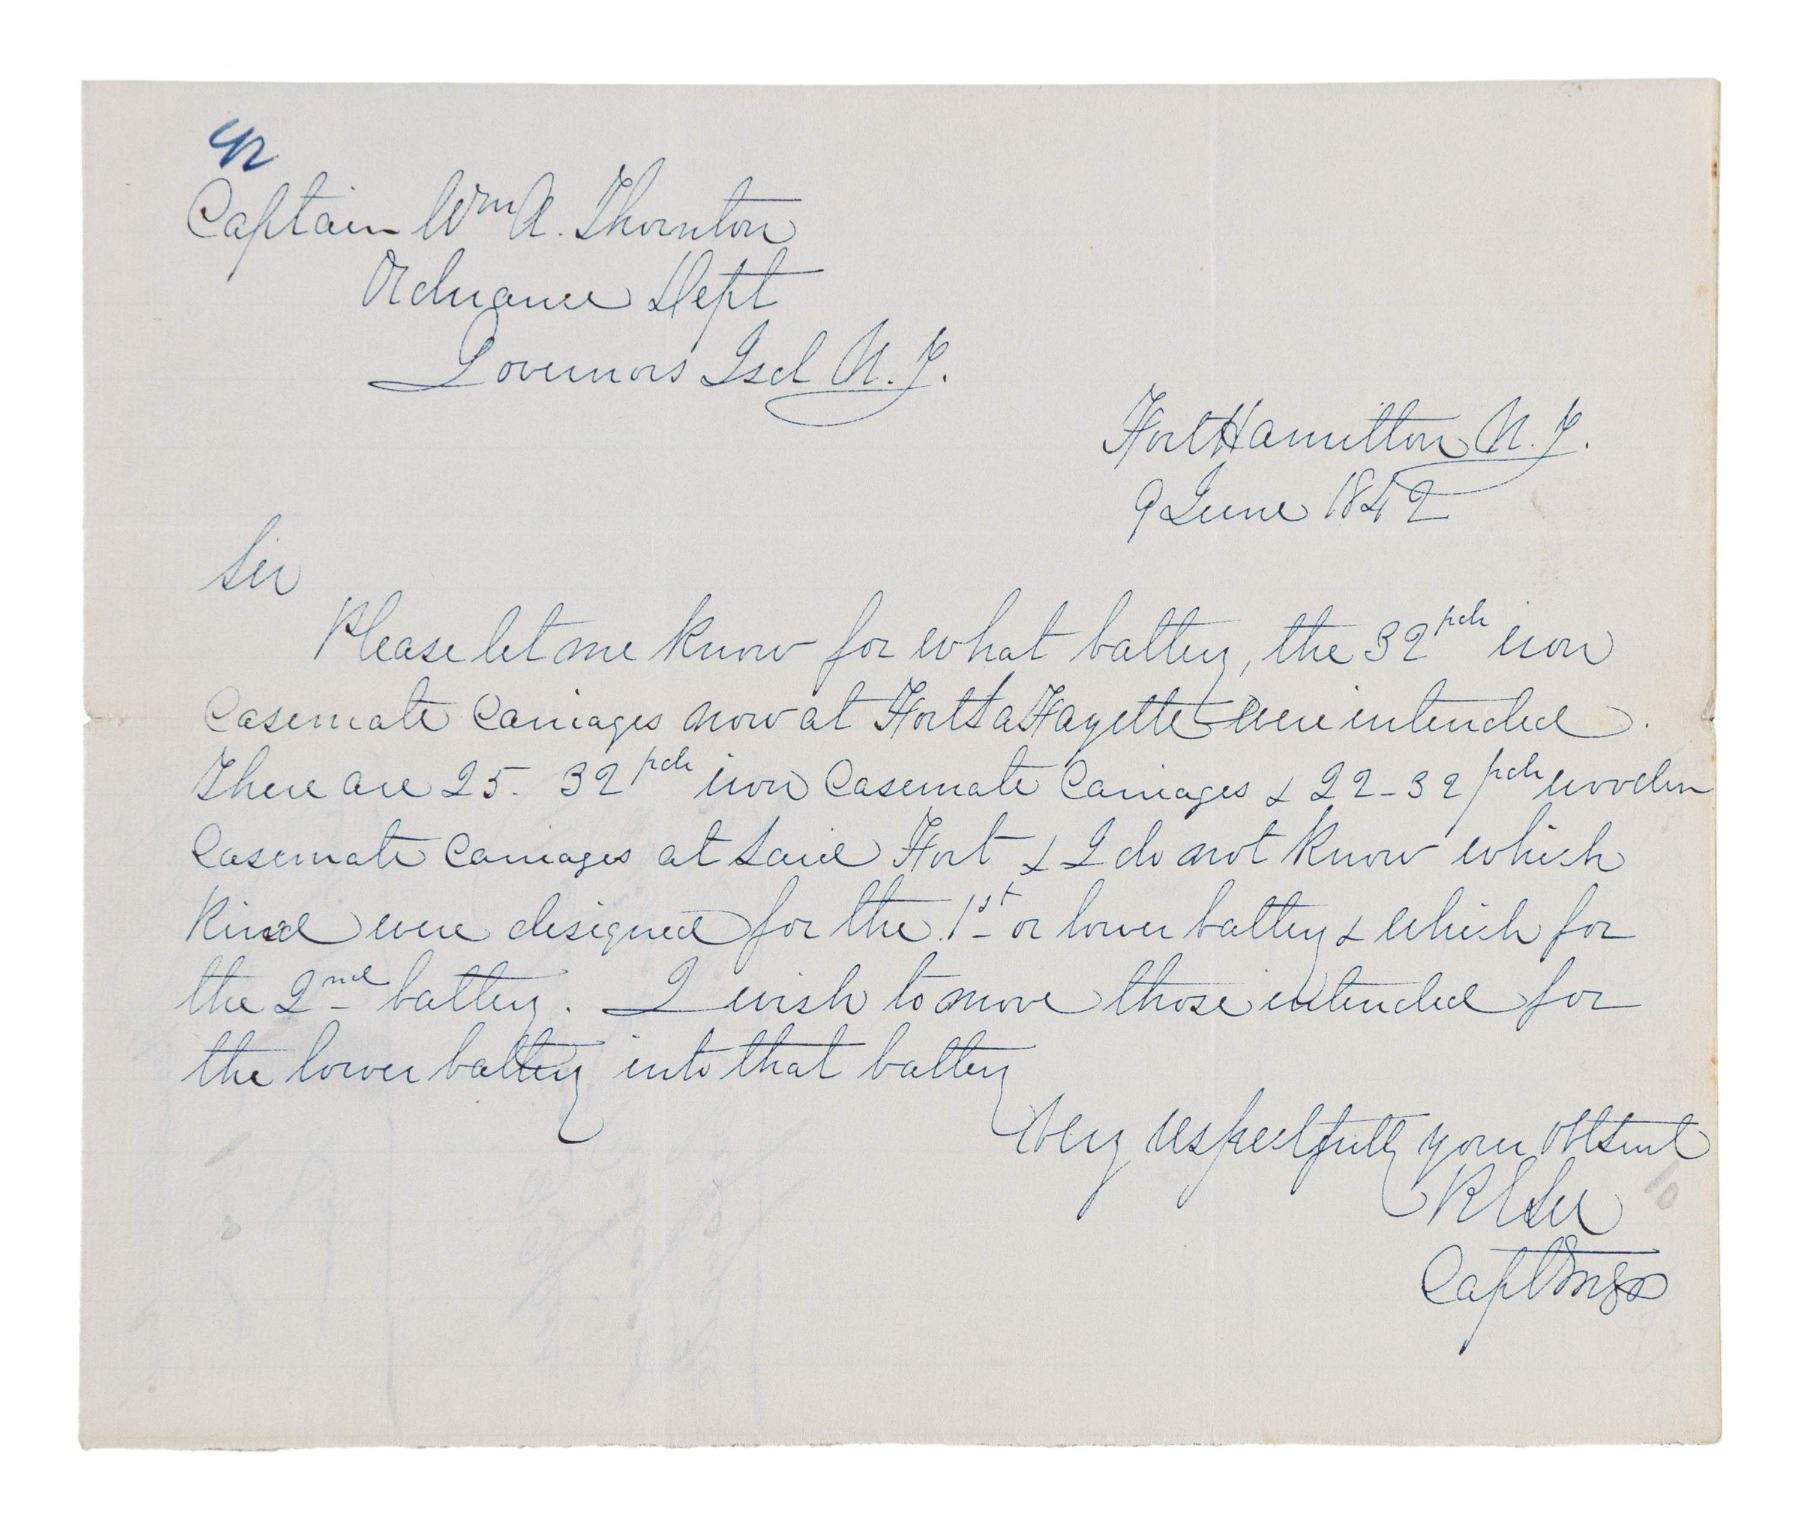 42
Captain Wm A. Thornton
Ordnance Dept
Governors Isd N.Y.
Fort Hamilton N.Y.
9 June 1842
Sir
Please let me know for what battery, the 32 pdr iron
Casemate Carriages now at Fort La Fayette were intended.
There are 25 - 32 pdr iron Casemate Carriages & 22 - 32 pdr wooden
Casemate Carriages at said Fort & I do not know which
kind were designed for the 1st or lower battery & which for
the 2nd battery. I wish to move those intended for
the lower battery into that battery
Very respectfully your Obt Servt
R E Lee
Capt Engs